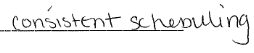 consistent scheduling